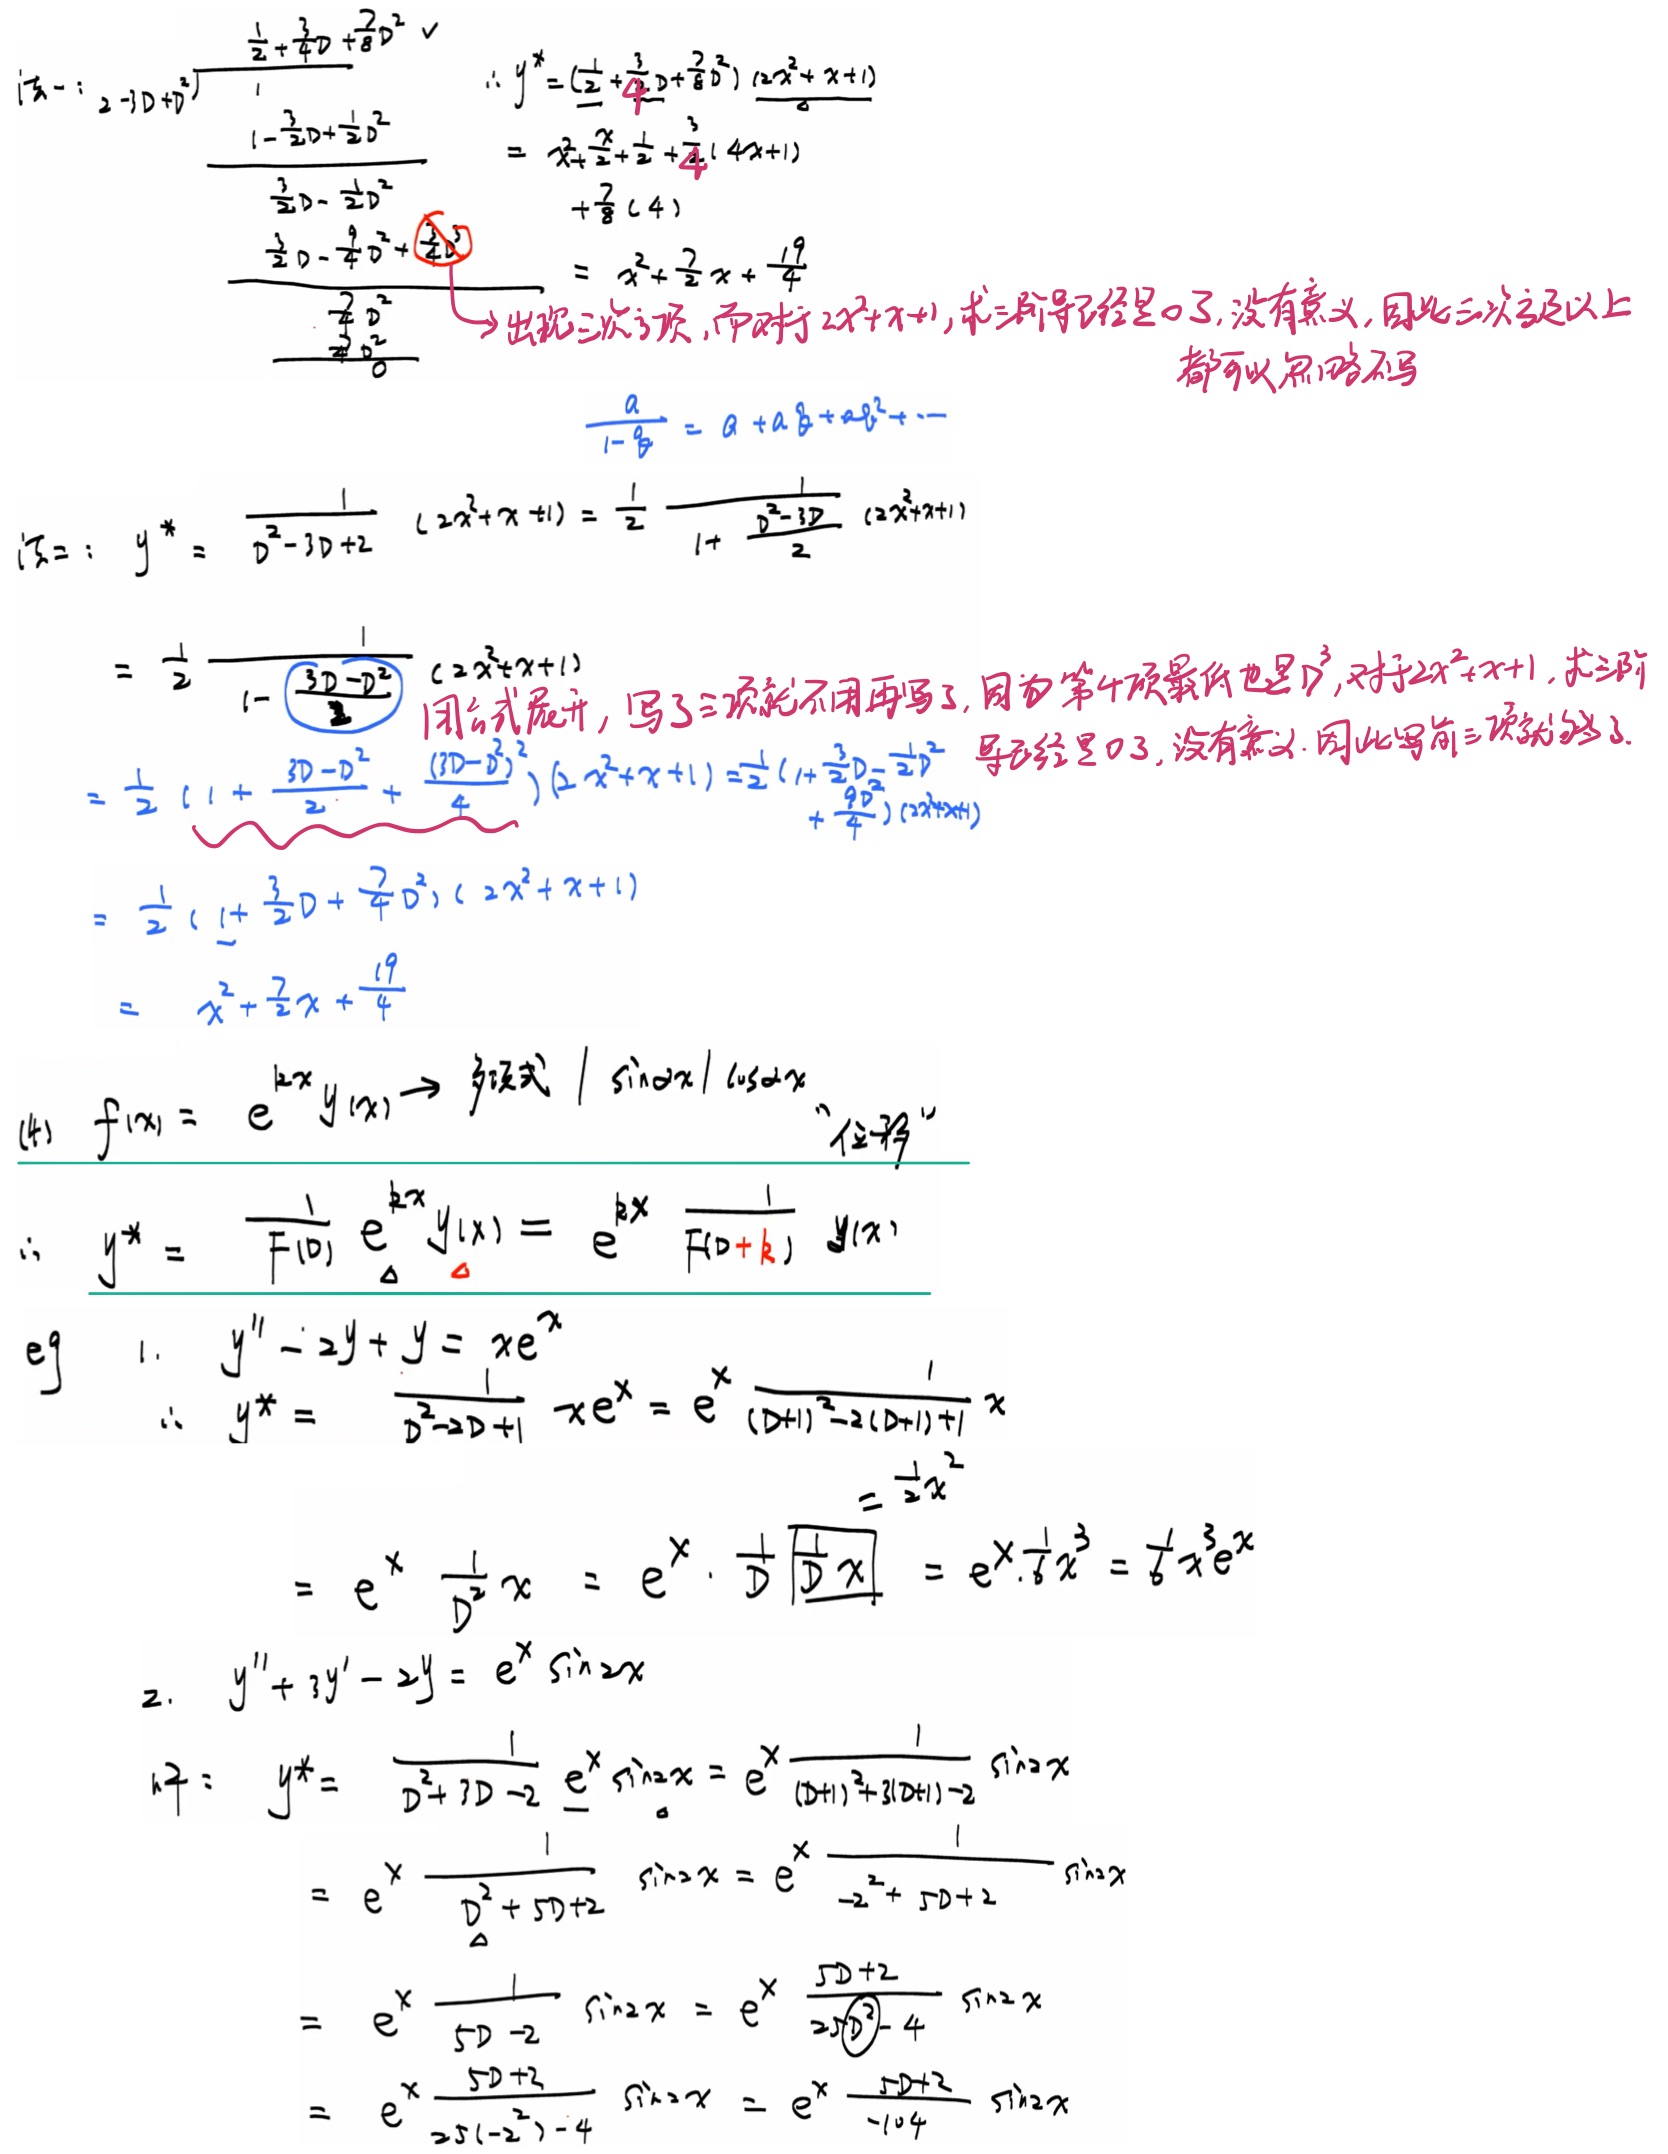 1/2 + 3/4 D + 7/8 D² ✓
法一: 2-3D+D² ) 1
1 - 3/2 D + 1/2 D²
3/2 D - 1/2 D²
3/2 D - 9/4 D² + 3/4 D³
7/4 D²
7/4 D²
0
∴ y* = (1/2 + 3/4 D + 7/8 D²) (2x² + x + 1)
= x² + x/2 + 1/2 + 3/4 (4x+1)
+ 7/8 (4)
= x² + 7/2 x + 19/4
→ 出现三次方项,而对于2x²+x+1,求三阶导已经是0了,没有意义,因此三次方及以上
都可以忽略不写
a/(1-q) = a + aq + aq² + ...
法二: y* = 1/(D²-3D+2) (2x²+x+1) = 1/2 1/(1 + (D²-3D)/2) (2x²+x+1)
= 1/2 1/(1 - (3D-D²)/2) (2x²+x+1)
闭合式展开,写了三项就不用再写了,因为第4项最低也是D³,对于2x²+x+1,求三阶
导已经是0了,没有意义.因此写前三项就够了.
= 1/2 (1 + (3D-D²)/2 + (3D-D²)²/4) (2x²+x+1) = 1/2 (1 + 3/2 D - 1/2 D²
+ 9D²/4) (2x²+x+1)
= 1/2 (1 + 3/2 D + 7/4 D²) (2x²+x+1)
= x² + 7/2 x + 19/4
(4) f(x) = e^{kx} y(x) → 多项式 | sinαx | cosαx
"位移"
∴ y* = 1/F(D) e^{kx} y(x) = e^{kx} 1/F(D+k) y(x)
eg 1. y'' - 2y + y = xe^x
∴ y* = 1/(D²-2D+1) xe^x = e^x 1/((D+1)²-2(D+1)+1) x
= 1/2 x²
= e^x 1/D² x = e^x · 1/D 1/D x = e^x · 1/6 x³ = 1/6 x³e^x
2. y'' + 3y' - 2y = e^x sin2x
解: y* = 1/(D²+3D-2) e^x sin2x = e^x 1/((D+1)²+3(D+1)-2) sin2x
= e^x 1/(D²+5D+2) sin2x = e^x 1/(-2²+5D+2) sin2x
= e^x 1/(5D-2) sin2x = e^x (5D+2)/(25D²-4) sin2x
= e^x (5D+2)/(25(-2²)-4) sin2x = e^x (5D+2)/(-104) sin2x